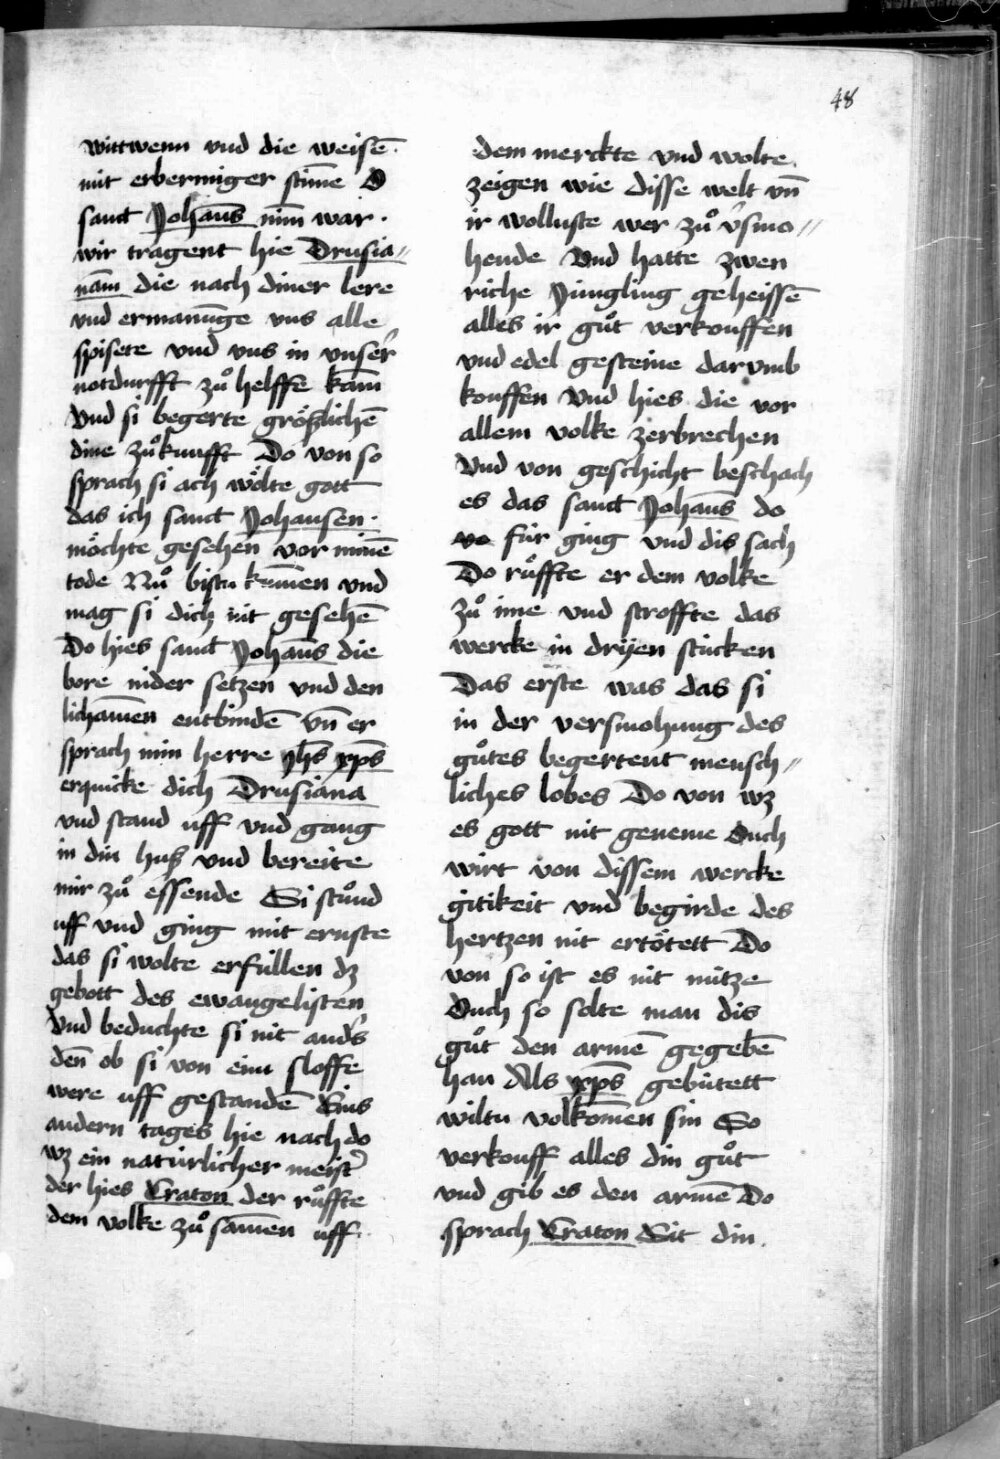 48
wittwenn vnd die weisē ·
mit erbermiger stīme O
sanct Johañs nim war ·
wir tragent hie Drusia〃
nām die nach diner lere
vnd ermanūge vns alle
spisete vnd vns in vnser̄
notdurfft zů helffē kam
Vnd si begerte grö́ßlichē
dine zůkunfft Do von so
sprach si ach wölte gott
das ich sanct Johansen ·
möchte gesehen vor minē
tode Nů bistu kūmen vnd
mag si dich nit gesehē
Do hies sanct Johañs die
bore nider setzen vnd den
lichāmen entbindē vn̄ er
sprach min herre yh̄s xp̄s
erquicke dich Drusiana
vnd stand uff vnd gang
in din huß vnd bereite
mir zů essende Si stůnd
uff vnd ging mit ernste
das si wolte erfüllen dz
gebott des ewangelisten
Vnd beduchte si nit and's
deñ ob si von eim sloffe
were uff gestandē Eins
andern tages hie nach do
wz ein natúrlicher meist'
der hies Craton der růffte
dem volke zů samēn uff
dem merckte vnd wolte
zeigen wie disse welt vn̄
ir wolluste wer zů v'smo〃
hende Vnd hatte zwen
riche Jüngling geheissē
alles ir gůt verkouffen
vnd edel gesteine darvmb
kouffen Vnd hies die vor
allem volke zerbrechen
Vnd von geschicht beschach
es das sanct Johañs do
für ging vnd dis sach
Do růffte er dem volke
zů ime vnd stroffte das
wercke in drÿen stúcken
Das erste was das si
in der versmohung des
gůtes begertent mensch〃
liches lobes Do von wz
es gott nit geneme Ouch
wirt von dissem wercke
gitikeit vnd begirde des
hertzen nit ertötett Do
von so ist es nit nütze
Ouch so solte man dis
gůt den armē gegebē
han Als xp̄s gebütett
wiltu volkōmen sin So
verkouff alles din gůt
vnd gib es den armē Do
sprach Craton Sit din